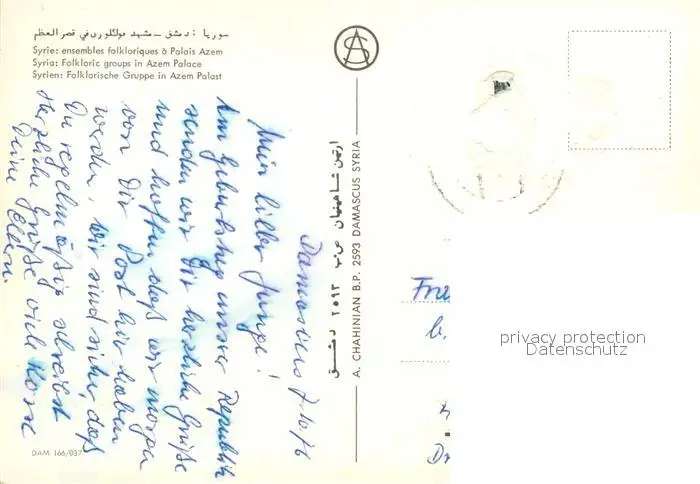 سوريا : دمشق – مشهد فولكلوري في قصر العظم
Syrie: ensembles folkloriques à Palais Azem
Syria: Folkloric groups in Azem Palace
Syrien: Folklorische Gruppe in Azem Palast
Damaskus 7.10.76
Mein lieber Junge!
Am Geburtstag unserer Republik
senden wir Dir herzliche Grüße
und hoffen, daß wir morgen
von Dir Post hier haben
werden. Wir sind sicher, daß
Du regelmäßig schreibst
Herzliche Grüße viele Küsse
Deine Eltern.
ارتين شاهينيان ص.ب ٢٥٩٣ دمشق
A. CHAHINIAN B.P. 2593 DAMASCUS SYRIA
AS
DAM 166/037
Fre
b.
Dr
privacy protection
Datenschutz